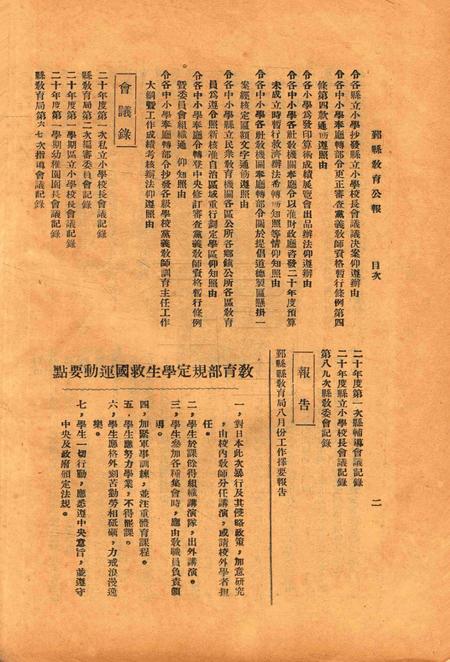 鄞縣教育公報　目次　二
令各縣立小學抄發縣立小學校長會議議決案仰遵辦由
令各中小學奉廳轉部令更正審查黨義教師資格暫行條例第四
條第四款通飭遵照由
令各小學為發印算術成績展覽會出品辦法仰遵辦由
令各中小學各社教機關奉廳令以准財政廳咨發二十年度預算
未成立時暫行救濟辦法希轉飭知照等情仰知照由
令各中小學各社教機關奉廳轉部令關於提倡道德製匾懸掛一
案經核定匾額文字通飭遵照由
令各中小學縣立民衆教育機關各區公所各鄉鎮公所各區教育
員為遵令照新核准自治區域重行劃定學區仰知照由
令各中小學奉廳令轉奉中央修訂審查黨義教師資格暫行條例
暨委員會組織通則仰知照由
令各中小學奉廳轉部令抄發各級學校黨義教師訓育主任工作
大綱暨工作成績考核辦法仰遵照由
會議錄
二十年度第一次私立小學校長會議記錄
縣教育局第二次編審委員會記錄
二十年度第一學期區立小學校長會議記錄
二十年度第一學期幼稚園園長會議記錄
縣教育局第六七次指導會議記錄
二十年度第一次縣輔導會議記錄
二十年度縣立小學校長會議記錄
第八九次縣教委會記錄
報告
鄞縣縣教育局八月份工作擇要報告
教育部規定學生救國運動要點
一，對日本此次暴行及其侵略政策，加意研究
，由校內教師分任講演，或請校外學者担
任。
二，學生於課餘得組織講演隊，出外講演。
三，學生參加各種集會時，應由教職員負責領
導。
四，加緊軍事訓練，並注重體育課程。
五，學生應努力學業，不得罷課。
六，學生應格外刻苦勤勞相砥礪，力戒浪漫逸
樂。
七，學生一切行動，應悉遵中央意旨，並遵守
中央及政府頒定法規。